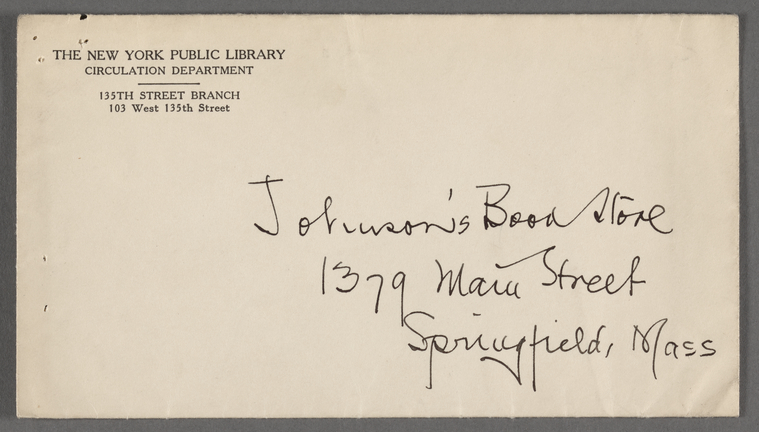 THE NEW YORK PUBLIC LIBRARY
CIRCULATION DEPARTMENT
135TH STREET BRANCH
103 West 135th Street
Johnson's Book Store
1379 Main Street
Springfield, Mass